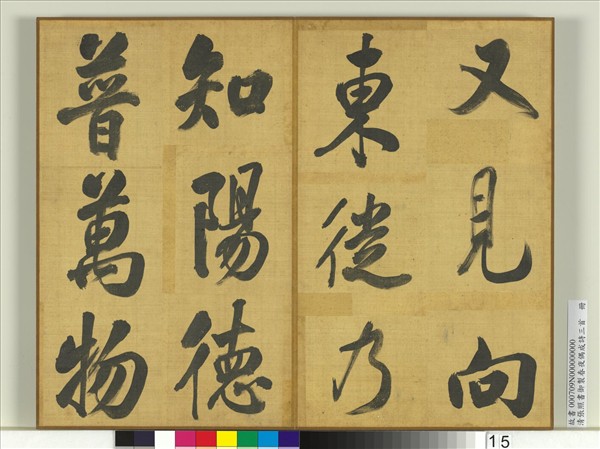 又見向
東從乃
知陽德
普萬物
故書000709N000000000
清張照書御製春夜偶成詩三首 冊
15